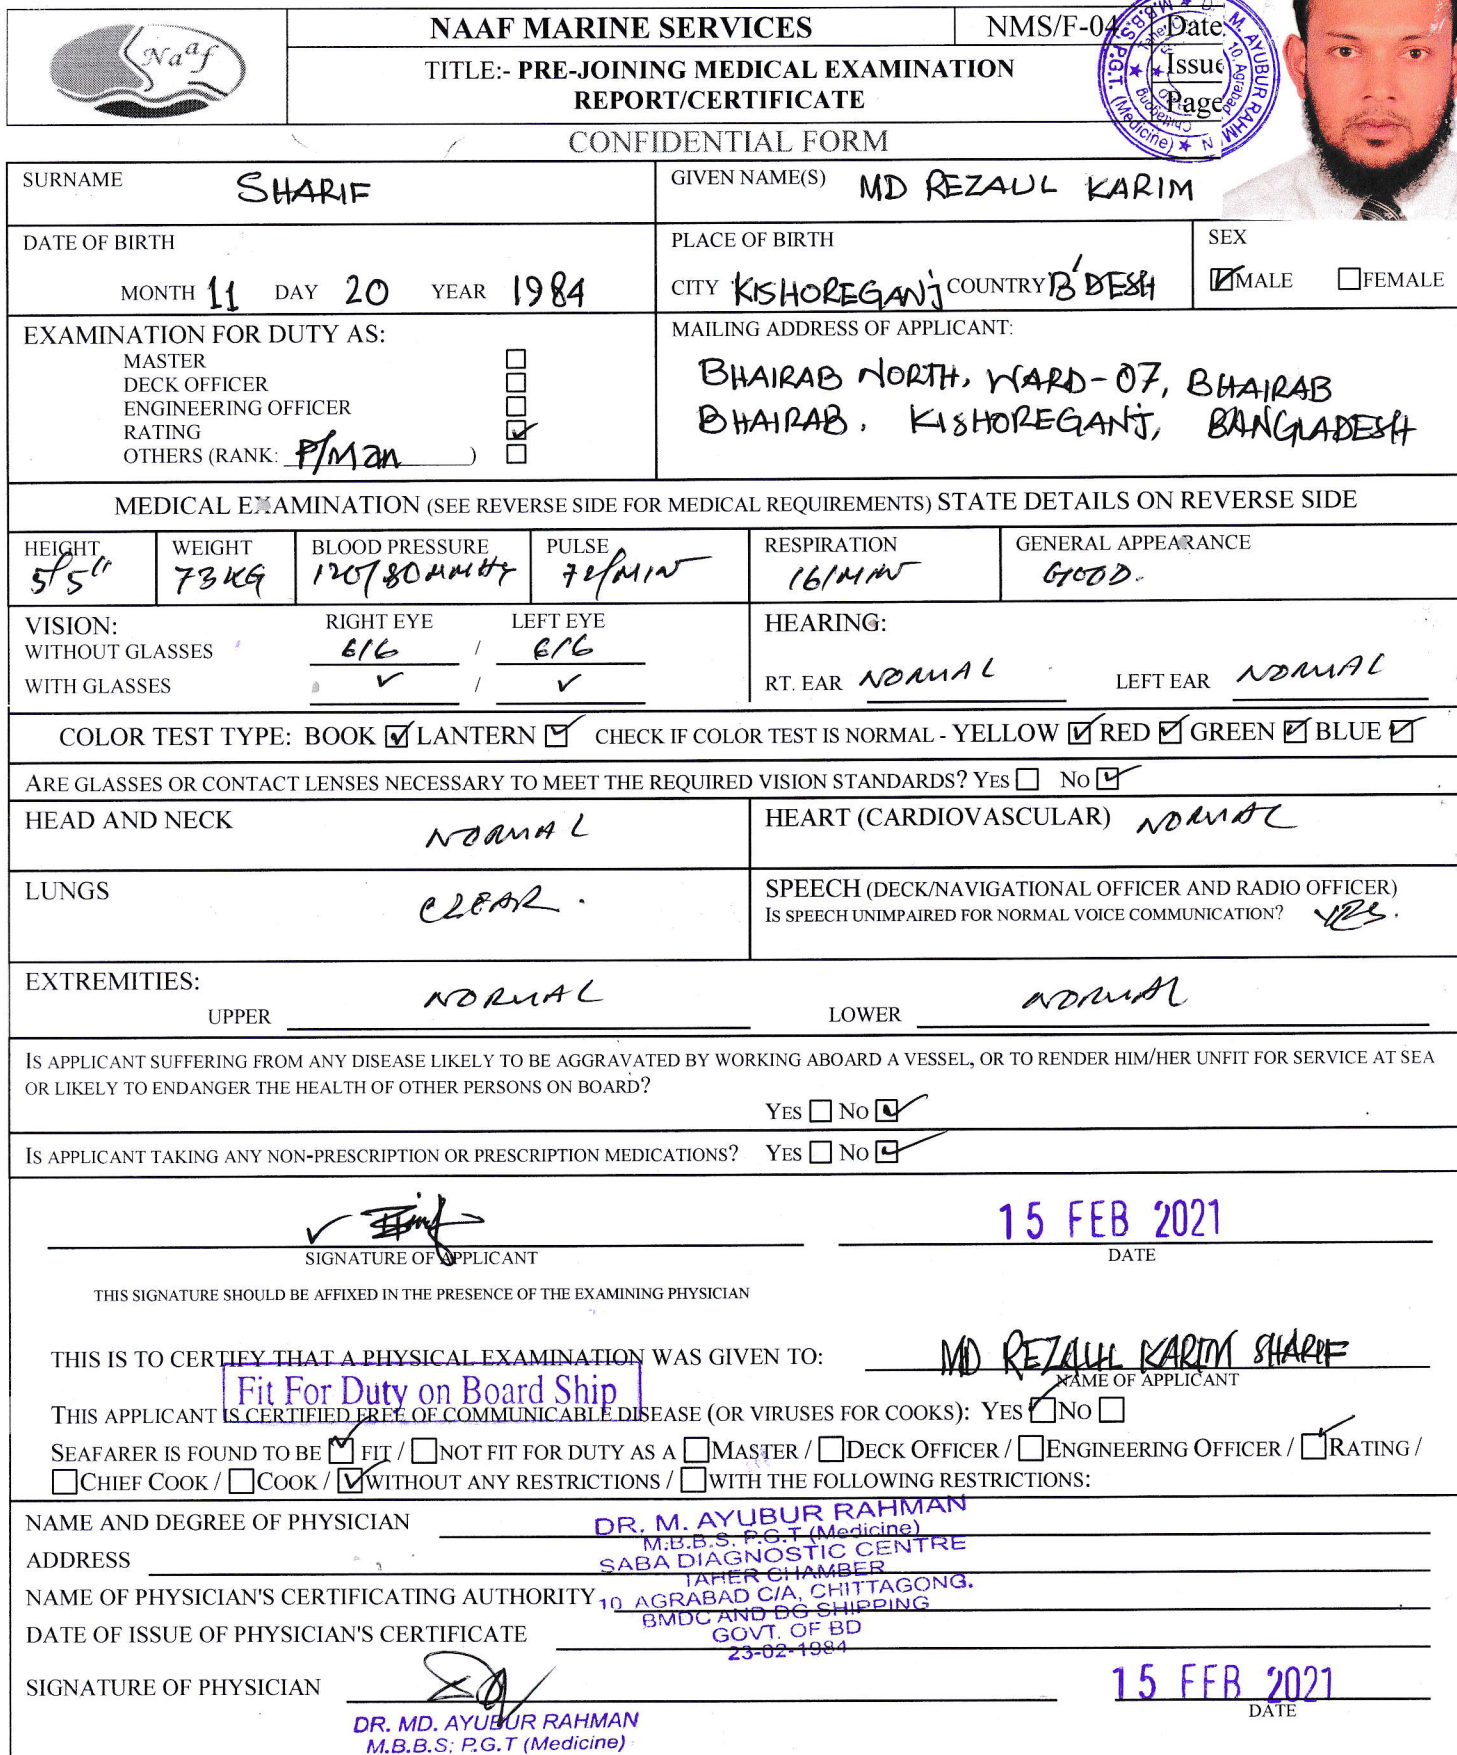 Naaf
NAAF MARINE SERVICES
NMS/F-04
Date:
TITLE:- PRE-JOINING MEDICAL EXAMINATION
REPORT/CERTIFICATE
Issue
Page
M. AYUBUR RAHM
M.B.B.S. P.G.T. (Medicine)
10, Agrabad
Chittagong
CONFIDENTIAL FORM
SURNAME SHARIF
GIVEN NAME(S) MD REZAUL KARIM
DATE OF BIRTH
MONTH 11 DAY 20 YEAR 1984
PLACE OF BIRTH
CITY KISHOREGANJ COUNTRY B'DESH
SEX
MALE FEMALE
EXAMINATION FOR DUTY AS:
MASTER
DECK OFFICER
ENGINEERING OFFICER
RATING
OTHERS (RANK: P/Man )
MAILING ADDRESS OF APPLICANT:
BHAIRAB NORTH, WARD-07, BHAIRAB
BHAIRAB, KISHOREGANJ, BANGLADESH
MEDICAL EXAMINATION (SEE REVERSE SIDE FOR MEDICAL REQUIREMENTS) STATE DETAILS ON REVERSE SIDE
HEIGHT
5'5"
WEIGHT
73 KG
BLOOD PRESSURE
120/80 MMHg
PULSE
72/MIN
RESPIRATION
16/MIN
GENERAL APPEARANCE
GOOD.
VISION: RIGHT EYE LEFT EYE
WITHOUT GLASSES 6/6 / 6/6
WITH GLASSES /
HEARING:
RT. EAR NORMAL LEFT EAR NORMAL
COLOR TEST TYPE: BOOK LANTERN CHECK IF COLOR TEST IS NORMAL - YELLOW RED GREEN BLUE
ARE GLASSES OR CONTACT LENSES NECESSARY TO MEET THE REQUIRED VISION STANDARDS? YES NO
HEAD AND NECK NORMAL
HEART (CARDIOVASCULAR) NORMAL
LUNGS CLEAR.
SPEECH (DECK/NAVIGATIONAL OFFICER AND RADIO OFFICER)
IS SPEECH UNIMPAIRED FOR NORMAL VOICE COMMUNICATION? YES.
EXTREMITIES:
UPPER NORMAL LOWER NORMAL
IS APPLICANT SUFFERING FROM ANY DISEASE LIKELY TO BE AGGRAVATED BY WORKING ABOARD A VESSEL, OR TO RENDER HIM/HER UNFIT FOR SERVICE AT SEA
OR LIKELY TO ENDANGER THE HEALTH OF OTHER PERSONS ON BOARD?
YES NO
IS APPLICANT TAKING ANY NON-PRESCRIPTION OR PRESCRIPTION MEDICATIONS? YES NO
15 FEB 2021
SIGNATURE OF APPLICANT DATE
THIS SIGNATURE SHOULD BE AFFIXED IN THE PRESENCE OF THE EXAMINING PHYSICIAN
THIS IS TO CERTIFY THAT A PHYSICAL EXAMINATION WAS GIVEN TO: MD REZAUL KARIM SHARIF
NAME OF APPLICANT
Fit For Duty on Board Ship
THIS APPLICANT IS CERTIFIED FREE OF COMMUNICABLE DISEASE (OR VIRUSES FOR COOKS): YES NO
SEAFARER IS FOUND TO BE FIT / NOT FIT FOR DUTY AS A MASTER / DECK OFFICER / ENGINEERING OFFICER / RATING /
CHIEF COOK / COOK / WITHOUT ANY RESTRICTIONS / WITH THE FOLLOWING RESTRICTIONS:
NAME AND DEGREE OF PHYSICIAN DR. M. AYUBUR RAHMAN
M.B.B.S. P.G.T (Medicine)
ADDRESS SABA DIAGNOSTIC CENTRE
TAHER CHAMBER
NAME OF PHYSICIAN'S CERTIFICATING AUTHORITY 10 AGRABAD C/A, CHITTAGONG.
BMDC AND DG SHIPPING
DATE OF ISSUE OF PHYSICIAN'S CERTIFICATE GOVT. OF BD
23-02-1984
SIGNATURE OF PHYSICIAN 15 FEB 2021
DATE
DR. MD. AYUBUR RAHMAN
M.B.B.S; P.G.T (Medicine)